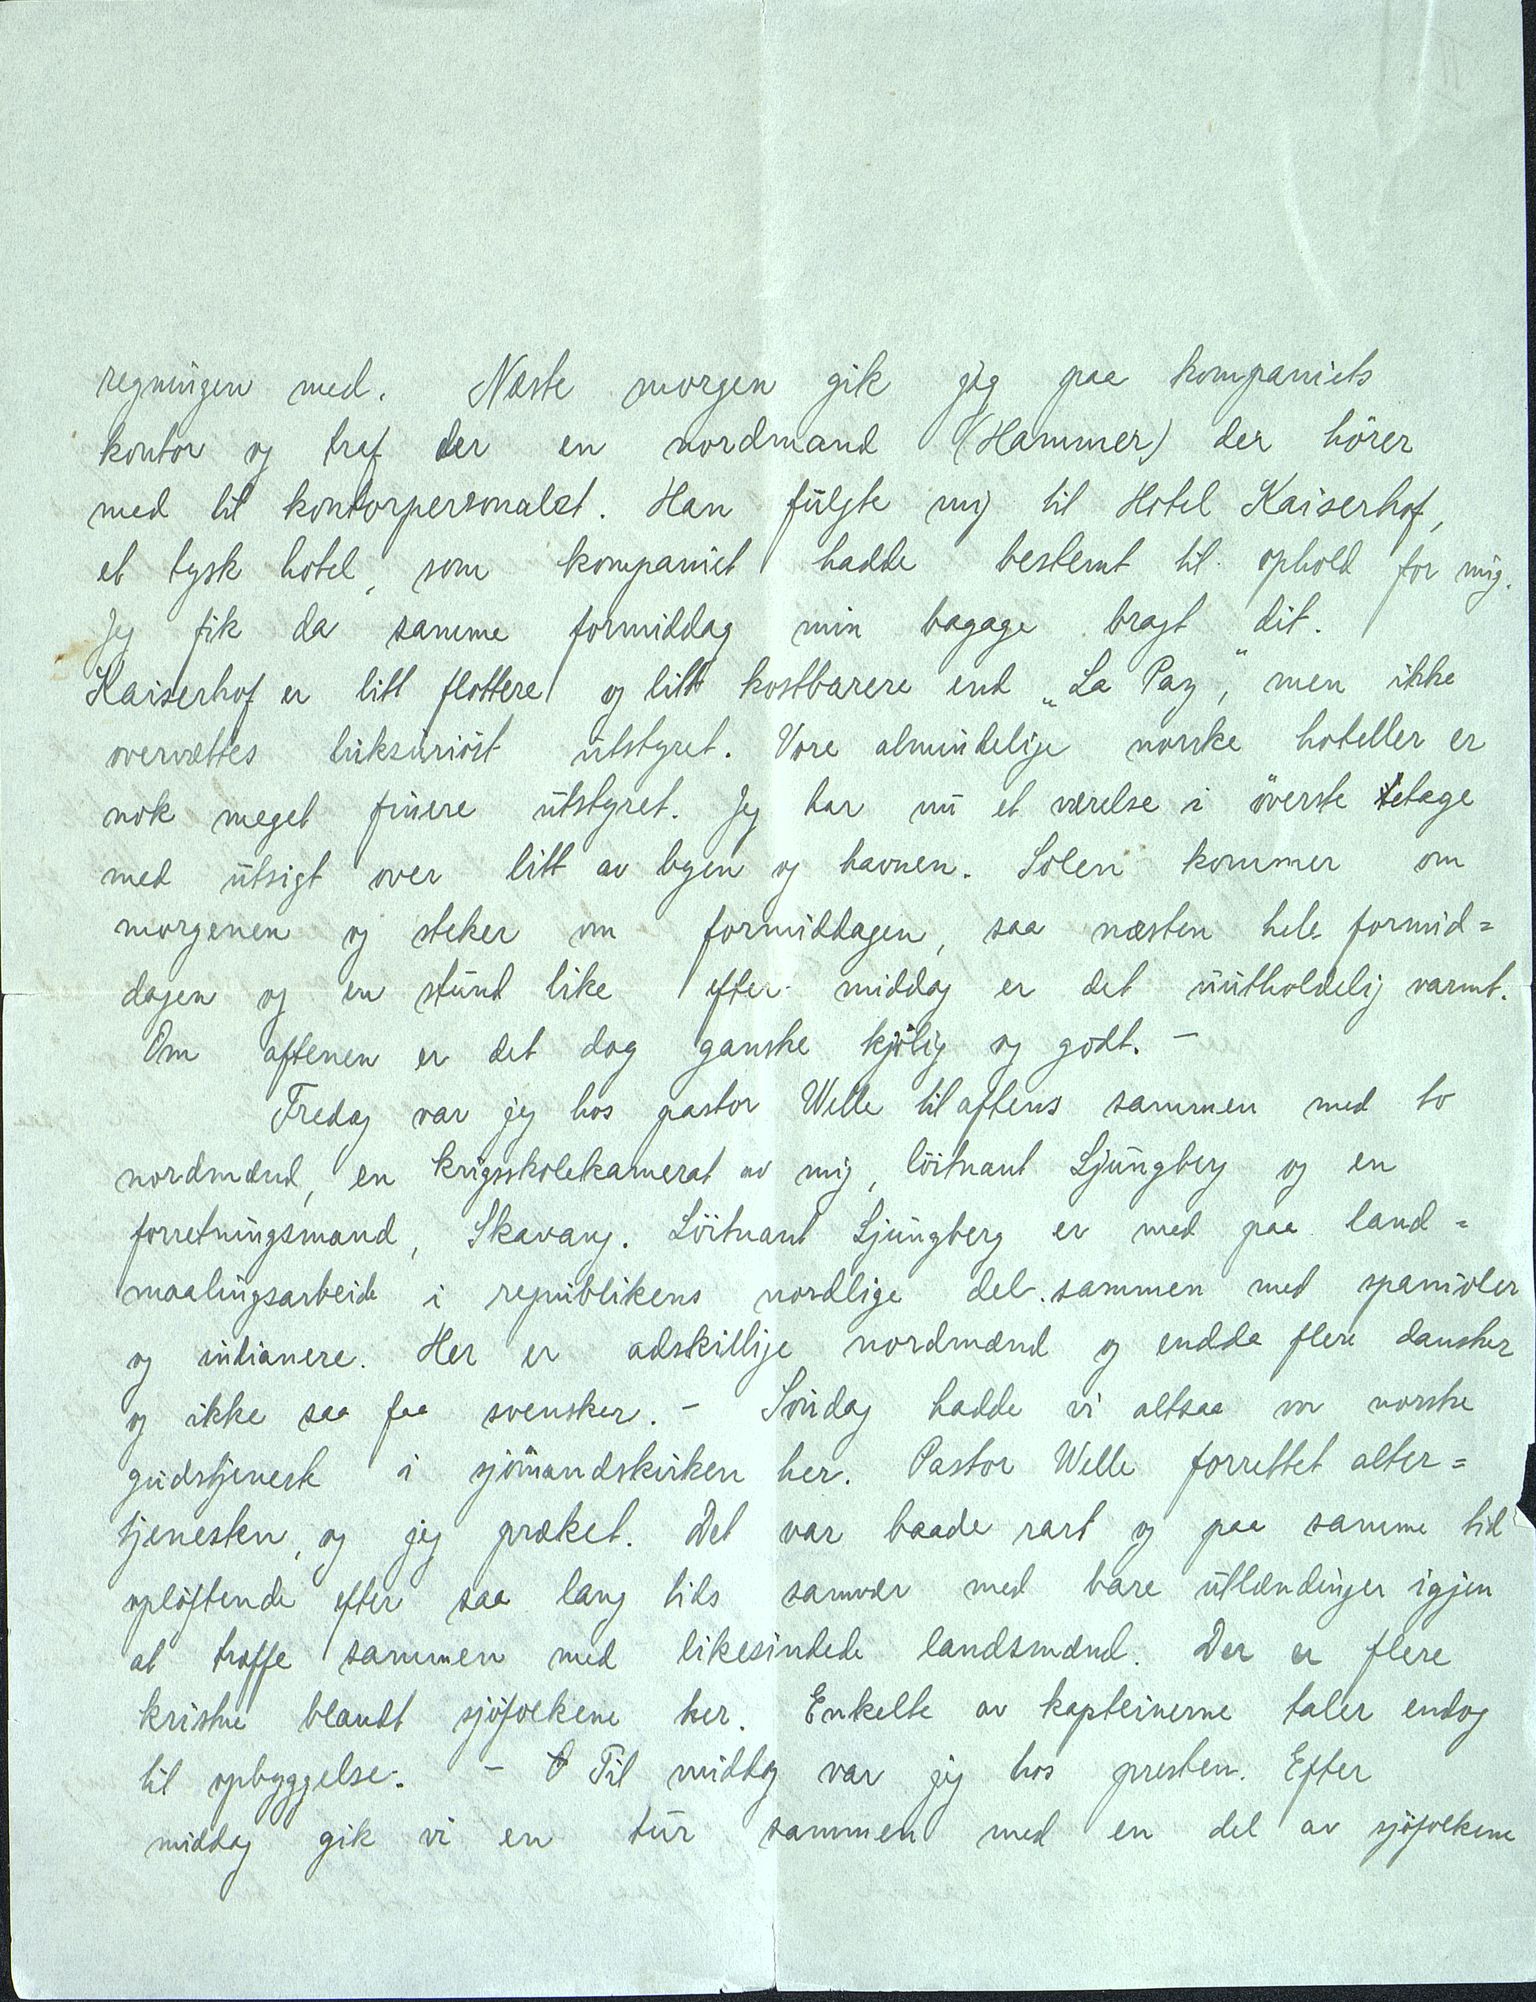 regningen med. Næste morgen gik jeg paa kompaniets
kontor og traf der en nordmand (Hammer) der hörer
med til kontorpersonalet. Han fulgte mig til Hotel Kaiserhof,
et tysk hotel, som kompaniet hadde bestemt til ophold for mig.
Jeg fik da samme formiddag min bagage bragt dit.
Kaiserhof er litt flottere og litt kostbarere end „La Paz", men ikke
overvættes luksuriöst utstyret. Vore almindelige norske hoteller er
nok meget finere utstyret. Jeg har nu et værelse i överste etage
med utsigt over litt av byen og havnen. Solen kommer om
morgenen og steker om formiddagen, saa næsten hele formid=
dagen og en stund like efter middag er det uutholdelig varmt.
Om aftenen er det dog ganske kjölig og godt. –
Fredag var jeg hos pastor Welle til aftens sammen med to
nordmænd, en krigsskolekamerat av mig, löitnant Ljungberg og en
forretningsmand, Skavang. Löitnant Ljungberg er med paa land=
maalingsarbeide i republikens nordlige del sammen med spanioler
og indianere. Her er adskillige nordmænd og endda flere dansker
og ikke saa faa svensker. – Söndag hadde vi altsaa vor norske
gudstjeneste i sjömandskirken her. Pastor Welle forrettet alter=
tjenesten, og jeg præket. Det var baade rart og paa samme tid
oplöftende efter saa lang tids samvær med bare utlændinger igjen
at træffe sammen med likesindede landsmænd. Der er flere
kristne blandt sjöfolkene her. Enkelte av kapteinerne taler endog
til opbyggelse. – Til middag var jeg hos presten. Efter
middag gik vi en tur sammen med en del av sjöfolkene